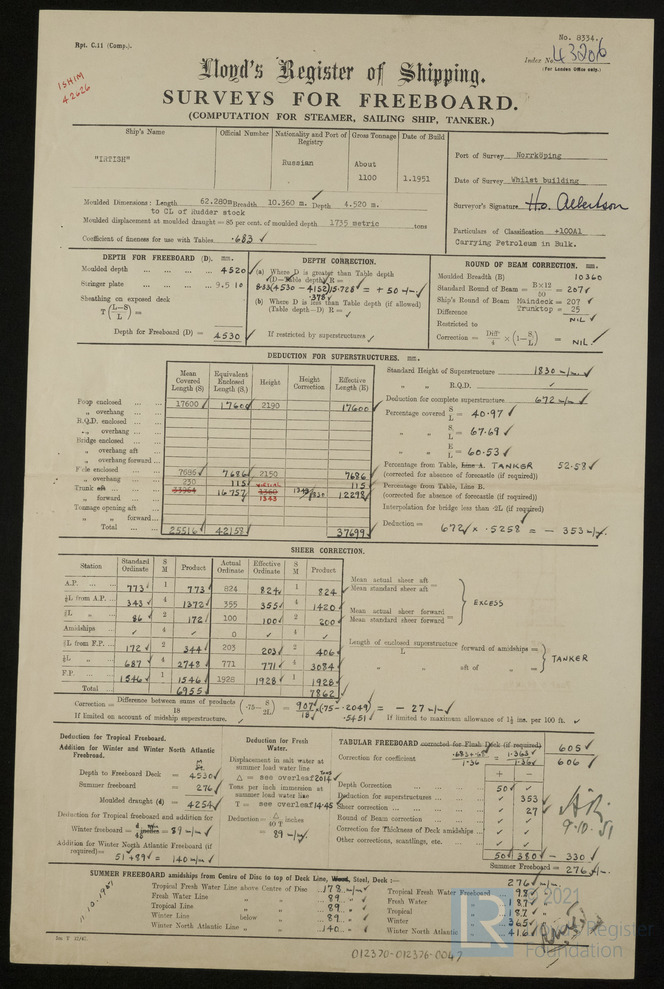 Rpt. C.11 (Comp.).
No. 8334.
Index No. 43206
(For London Office only.)
ISHIM
42626
Lloyd's Register of Shipping.
SURVEYS FOR FREEBOARD.
(COMPUTATION FOR STEAMER, SAILING SHIP, TANKER.)
Ship's Name
Official Number
Nationality and Port of Registry
Gross Tonnage
Date of Build
"IRTISH"
Russian
About 1100
1.1951
Port of Survey Norrköping
Date of Survey Whilst building
Surveyor's Signature
Particulars of Classification +100A1
Carrying Petroleum in Bulk.
Moulded Dimensions: Length 62.280m Breadth 10.360 m. Depth 4.520 m.
to CL of Rudder stock
Moulded displacement at moulded draught = 85 per cent. of moulded depth 1735 metric tons
Coefficient of fineness for use with Tables .683 ✓
DEPTH FOR FREEBOARD (D). mm.
Moulded depth ... ... ... 4520 ✓
Stringer plate ... ... ... 9.5 10
Sheathing on exposed deck
T (L-S/L) =
Depth for Freeboard (D) = 4530 ✓
DEPTH CORRECTION.
(a) Where D is greater than Table depth
(D—Table depth) R =
8.33(4530 - 4152)15.728 = + 50 -/-. ✓
.378 ✓
(b) Where D is less than Table depth (if allowed)
(Table depth—D) R = ✓
If restricted by superstructures ✓
ROUND OF BEAM CORRECTION. mm.
Moulded Breadth (B) 10360
Standard Round of Beam = B×12/50 = 207 ✓
Ship's Round of Beam Maindeck = 207 ✓
Trunktop = 25
Difference
NIL ✓
Restricted to
Correction = Diff/4 × (1-S/L) = NIL ✓
DEDUCTION FOR SUPERSTRUCTURES. mm.
Mean Covered Length (S)
Equivalent Enclosed Length (S₁)
Height
Height Correction
Effective Length (E)
Poop enclosed ... ... 17600 ✓ 17600 ✓ 2190 17600 ✓
„ overhang ... ...
R.Q.D. enclosed ...
„ overhang ...
Bridge enclosed ...
„ overhang aft ...
„ overhang forward ...
F'cle enclosed ... 7686 ✓ 7686 ✓ 2150 7686 ✓
„ overhang ... 230 115 ✓ 115 ✓
Trunk aft ... 16757 ✓ 1343 12298 ✓
„ forward ...
Tonnage opening aft ...
„ „ forward...
Total ... ... 25516 ✓ 42158 ✓ 37699 ✓
Standard Height of Superstructure 1830 -/-. ✓
„ „ R.Q.D. ✓
Deduction for complete superstructure 672 -/-. ✓
Percentage covered S/L = 40.97 ✓
„ „ S₁/L = 67.69 ✓
„ „ E/L = 60.53 ✓
Percentage from Table, Line A. TANKER 52.58 ✓
(corrected for absence of forecastle (if required))
Percentage from Table, Line B.
(corrected for absence of forecastle (if required))
Interpolation for bridge less than ·2L (if required)
Deduction = 672 × .5258 = - 353 -/-. ✓
SHEER CORRECTION.
Station
Standard Ordinate
S M
Product
Actual Ordinate
Effective Ordinate
S M
Product
A.P. ... ... 773 ✓ 1 773 ✓ 824 824 ✓ 1 824 ✓
⅙L from A.P. ... 343 ✓ 4 1372 ✓ 355 355 ✓ 4 1420 ✓
⅓L „ ... 86 ✓ 2 172 ✓ 100 100 ✓ 2 200 ✓
Amidships ... ✓ 4 ✓ 0 ✓ 4 ✓
⅓L from F.P. ... 172 ✓ 2 344 ✓ 203 203 ✓ 2 406 ✓
⅙L „ ... 687 ✓ 4 2748 ✓ 771 771 ✓ 4 3084 ✓
F.P. ... ... 1546 ✓ 1 1546 ✓ 1928 1928 ✓ 1 1928 ✓
Total ... 6955 ✓ 7862 ✓
Mean actual sheer aft =
Mean standard sheer aft
Mean actual sheer forward =
Mean standard sheer forward
EXCESS
Length of enclosed superstructure / L forward of amidships =
„ „ aft of „ =
TANKER
Correction = Difference between sums of products / 18 (·75 - S/2L) = 907/18 (.75 - .2049) = - 27 -/-. ✓
.5451 ✓
If limited on account of midship superstructure. ✓
If limited to maximum allowance of 1½ ins. per 100 ft. ✓
Deduction for Tropical Freeboard.
Addition for Winter and Winter North Atlantic Freeboard.
Depth to Freeboard Deck = 4530 ✓
Summer freeboard = 276 ✓
Moulded draught (d) = 4254 ✓
Deduction for Tropical freeboard and addition for
Winter freeboard = d/48 = 89 -/-. ✓
Addition for Winter North Atlantic Freeboard (if required) =
51 + 89 = 140 -/-. ✓
Deduction for Fresh Water.
Displacement in salt water at summer load water line
△ = see overleaf 2014 ✓
Tons per inch immersion at summer load water line
T = see overleaf 14.45 ✓
Deduction = △/40 T inches
= 89 -/-. ✓
TABULAR FREEBOARD corrected for Flush Deck (if required) 605 ✓
Correction for coefficient .683+.68/1.36 = 1.363/1.36 606 ✓
+ -
Depth Correction ... ... 50 ✓
Deduction for superstructures ... ✓ 353
Sheer correction ... ... ✓ 27
Round of Beam correction ... ✓ ✓
Correction for Thickness of Deck amidships ... ✓ ✓
Other corrections, scantlings, etc. ... ✓ ✓
50 380 - 330
Summer Freeboard = 276 -/-.
9.10.51
SUMMER FREEBOARD amidships from Centre of Disc to top of Deck Line, Wood, Steel, Deck :—
276 -/-.
Tropical Fresh Water Line above Centre of Disc ... 178 -/-. ✓
Fresh Water Line „ „ ... 89 „ ✓
Tropical Line „ „ ... 89 „ ✓
Winter Line below „ ... 89 „ ✓
Winter North Atlantic Line „ „ ... 140 „ ✓
Tropical Fresh Water Freeboard ... 98
Fresh Water „ ... 187
Tropical „ ... 187
Winter „ ... 365
Winter North Atlantic „ ... 416
11.10.1951
012370-012376-0047
LR
© 2021
Lloyd's Register
Foundation